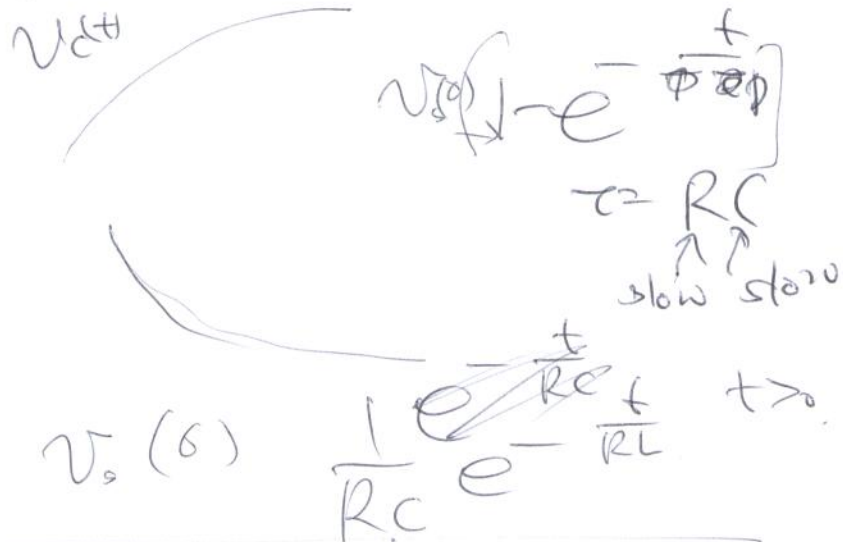 v_c(t)
v_s(0) [1 - e^{-t/RC}]
τ = RC
slow slow
v_s(0) 1/RC e^{-t/RL} t>0